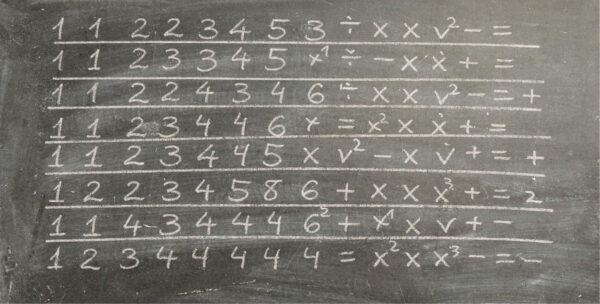 1 1 2 2 3 4 5 3 ÷ x x v² - =
1 1 2 3 3 4 5 x¹ ÷ - x ẋ + =
1 1 2 2 4 3 4 6 ÷ x x v² - = +
1 1 2 3 4 4 6 x = x² x ẋ + =
1 1 2 3 4 4 5 x v² - x v̇ + = +
1 2 2 3 4 5 8 6 + x x x³ + = 2
1 1 4 - 3 4 4 4 6² + x¹ x v + -
1 2 3 4 4 4 4 4 = x² x x³ - = -